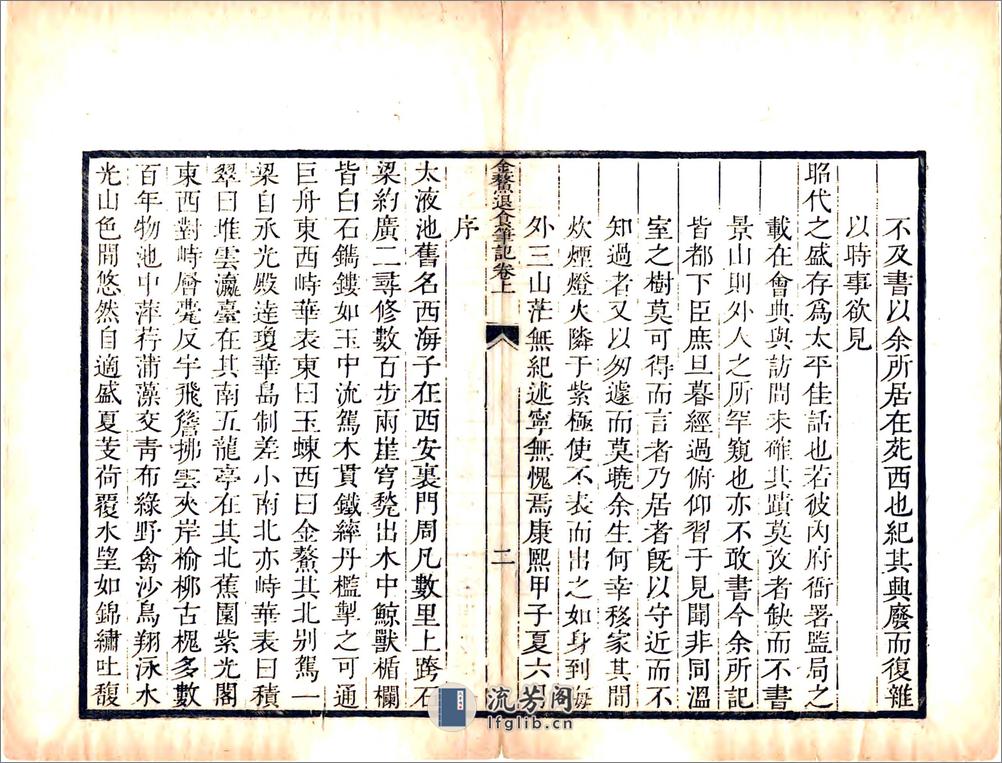 不及書以余所居在苑西也紀其興廢而復雜
以時事欲見
昭代之盛存爲太平佳話也若彼內府衙署監局之
載在會典與訪問未確其蹟莫攷者缺而不書
景山則外人之所罕窺也亦不敢書今余所記
皆都下臣庶旦暮經過俯仰習于見聞非同溫
室之樹莫可得而言者乃居者旣以守近而不
知過者又以匆遽而莫曉余生何幸移家其間
炊煙燈火隣于紫極使不表而出之如身到海
外三山茫無紀述寧無愧焉康熙甲子夏六月
序
金鰲退食筆記卷上 二
太液池舊名西海子在西安裏門周凡數里上跨石
梁約廣二尋修數百步兩崖穹甃出水中鯨獸楯欄
皆白石鐫鏤如玉中流駕木貫鐵縴丹檻掣之可通
巨舟東西峙華表東曰玉蝀西曰金鰲其北別駕一
梁自承光殿達瓊華島制差小南北亦峙華表曰積
翠曰堆雲瀛臺在其南五龍亭在其北蕉園紫光閣
東西對峙層甍反宇飛簷拂雲夾岸榆柳古槐多數
百年物池中萍荇蒲藻交靑布綠野禽沙鳥翔泳水
光山色間悠然自適盛夏芰荷覆水望如錦繡吐馥
流芳阁
lfglib.cn